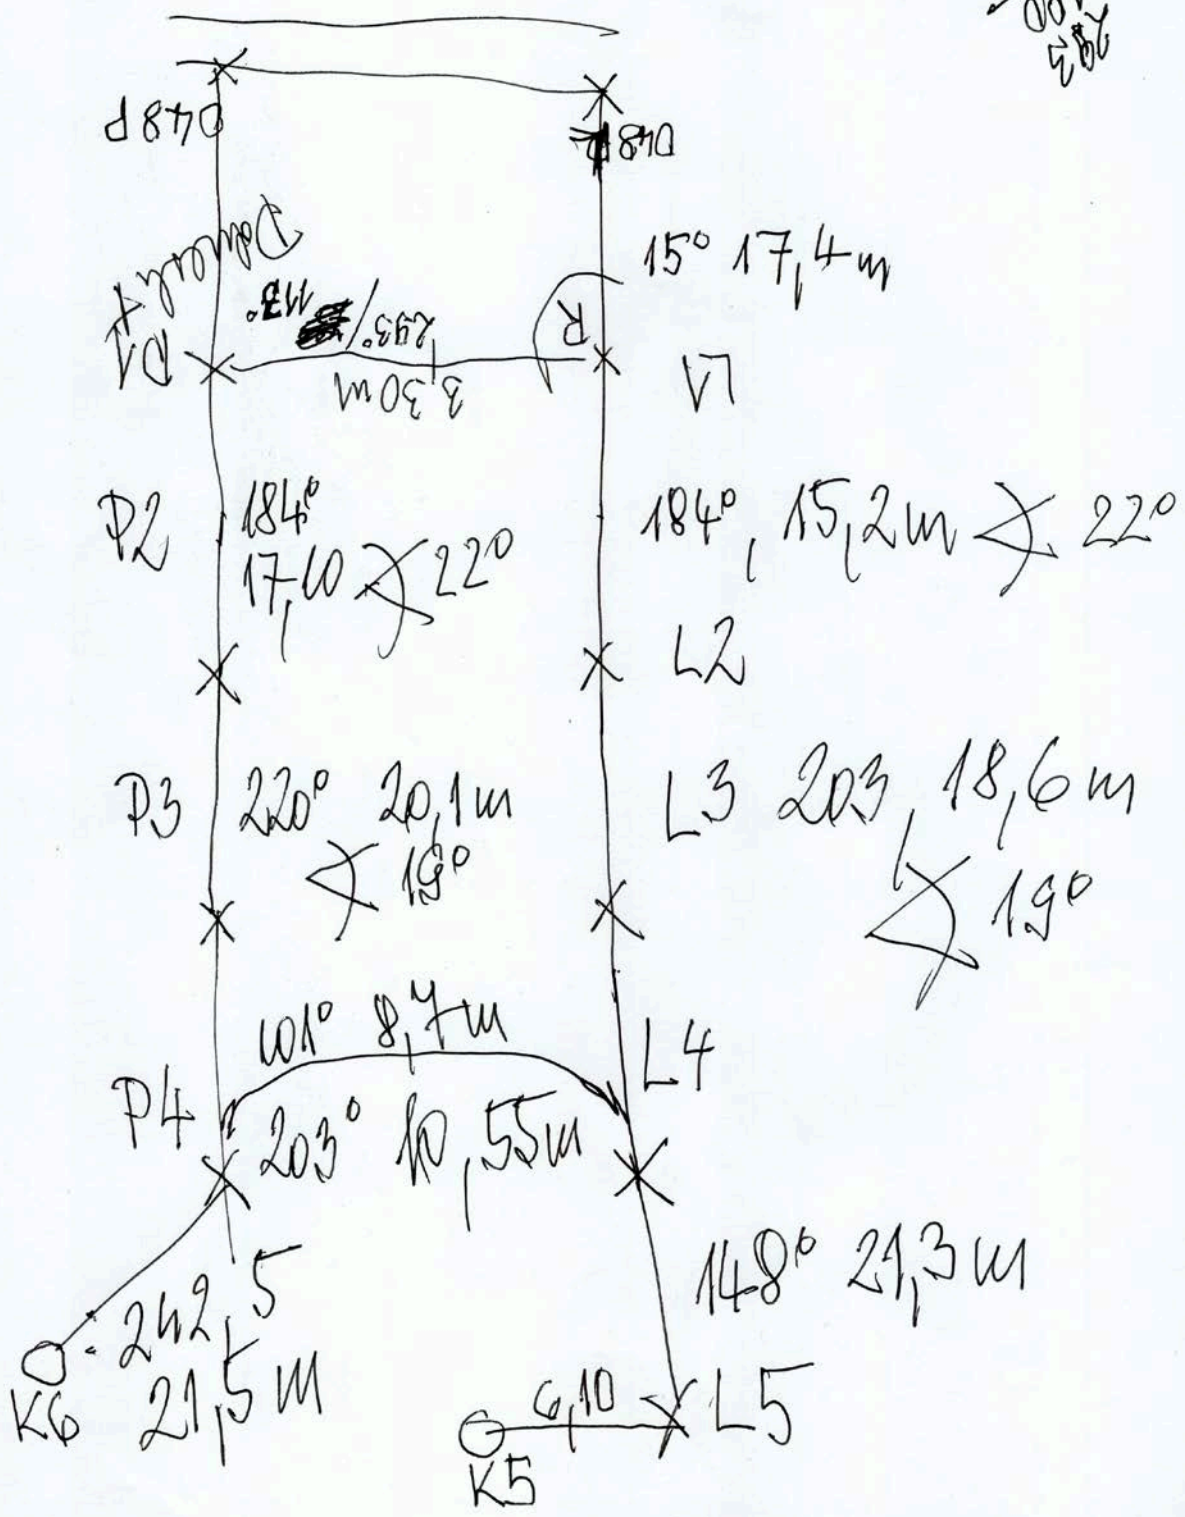 D48P
D48L
15° 17,4m
113°
293°
R
P1
3,30m
L1
P2
184°
17,10 ∢ 22°
184°, 15,2m ∢ 22°
L2
P3 220° 20,1m
∢ 19°
L3 203, 18,6m
∢ 19°
101° 8,7m
L4
P4
203° 10,55m
148° 21,3m
242,5
21,5m
K6
6,10
L5
K5